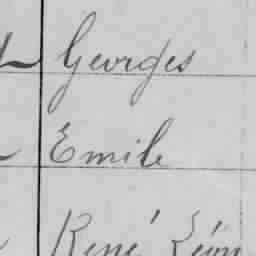 Georges
Emile
René Léon